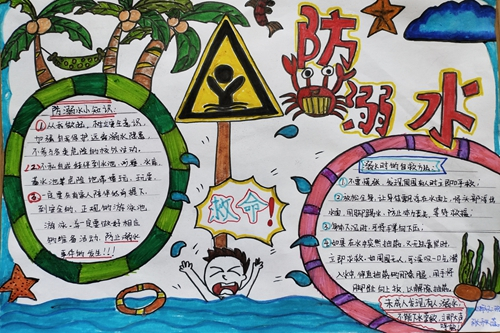 防溺水
防溺水小知识:
①从我做起,树立安全意识,
加强自我保护,远离溺水隐患
不参与有危险的嬉戏活动。
②不私自或结伴到水池、河塘、水库、
蓄水池等危险地带嬉玩、玩耍。
③一定要在家人陪伴的前提下,
到安全的、正规的游泳池
游泳,还一定要做好相应
的准备活动,防止溺水
事件的发生!!!
救命!
溺水时的自救方法:
①不要慌张,发现周围有人时立即呼救。
②放松全身,让身体漂浮在水面上,将头部浮出
水面,用脚踢水,防止体力丧失,等待救援。
③身体下沉时,可将手掌向下压。
④如果在水中突然抽筋,又无法靠岸时,
立即求救。如周围无人,可深吸一口气潜
入水中,伸直抽筋的那条腿,用手将
脚趾向上扳,以解除抽筋。
未成人发现有人溺水,